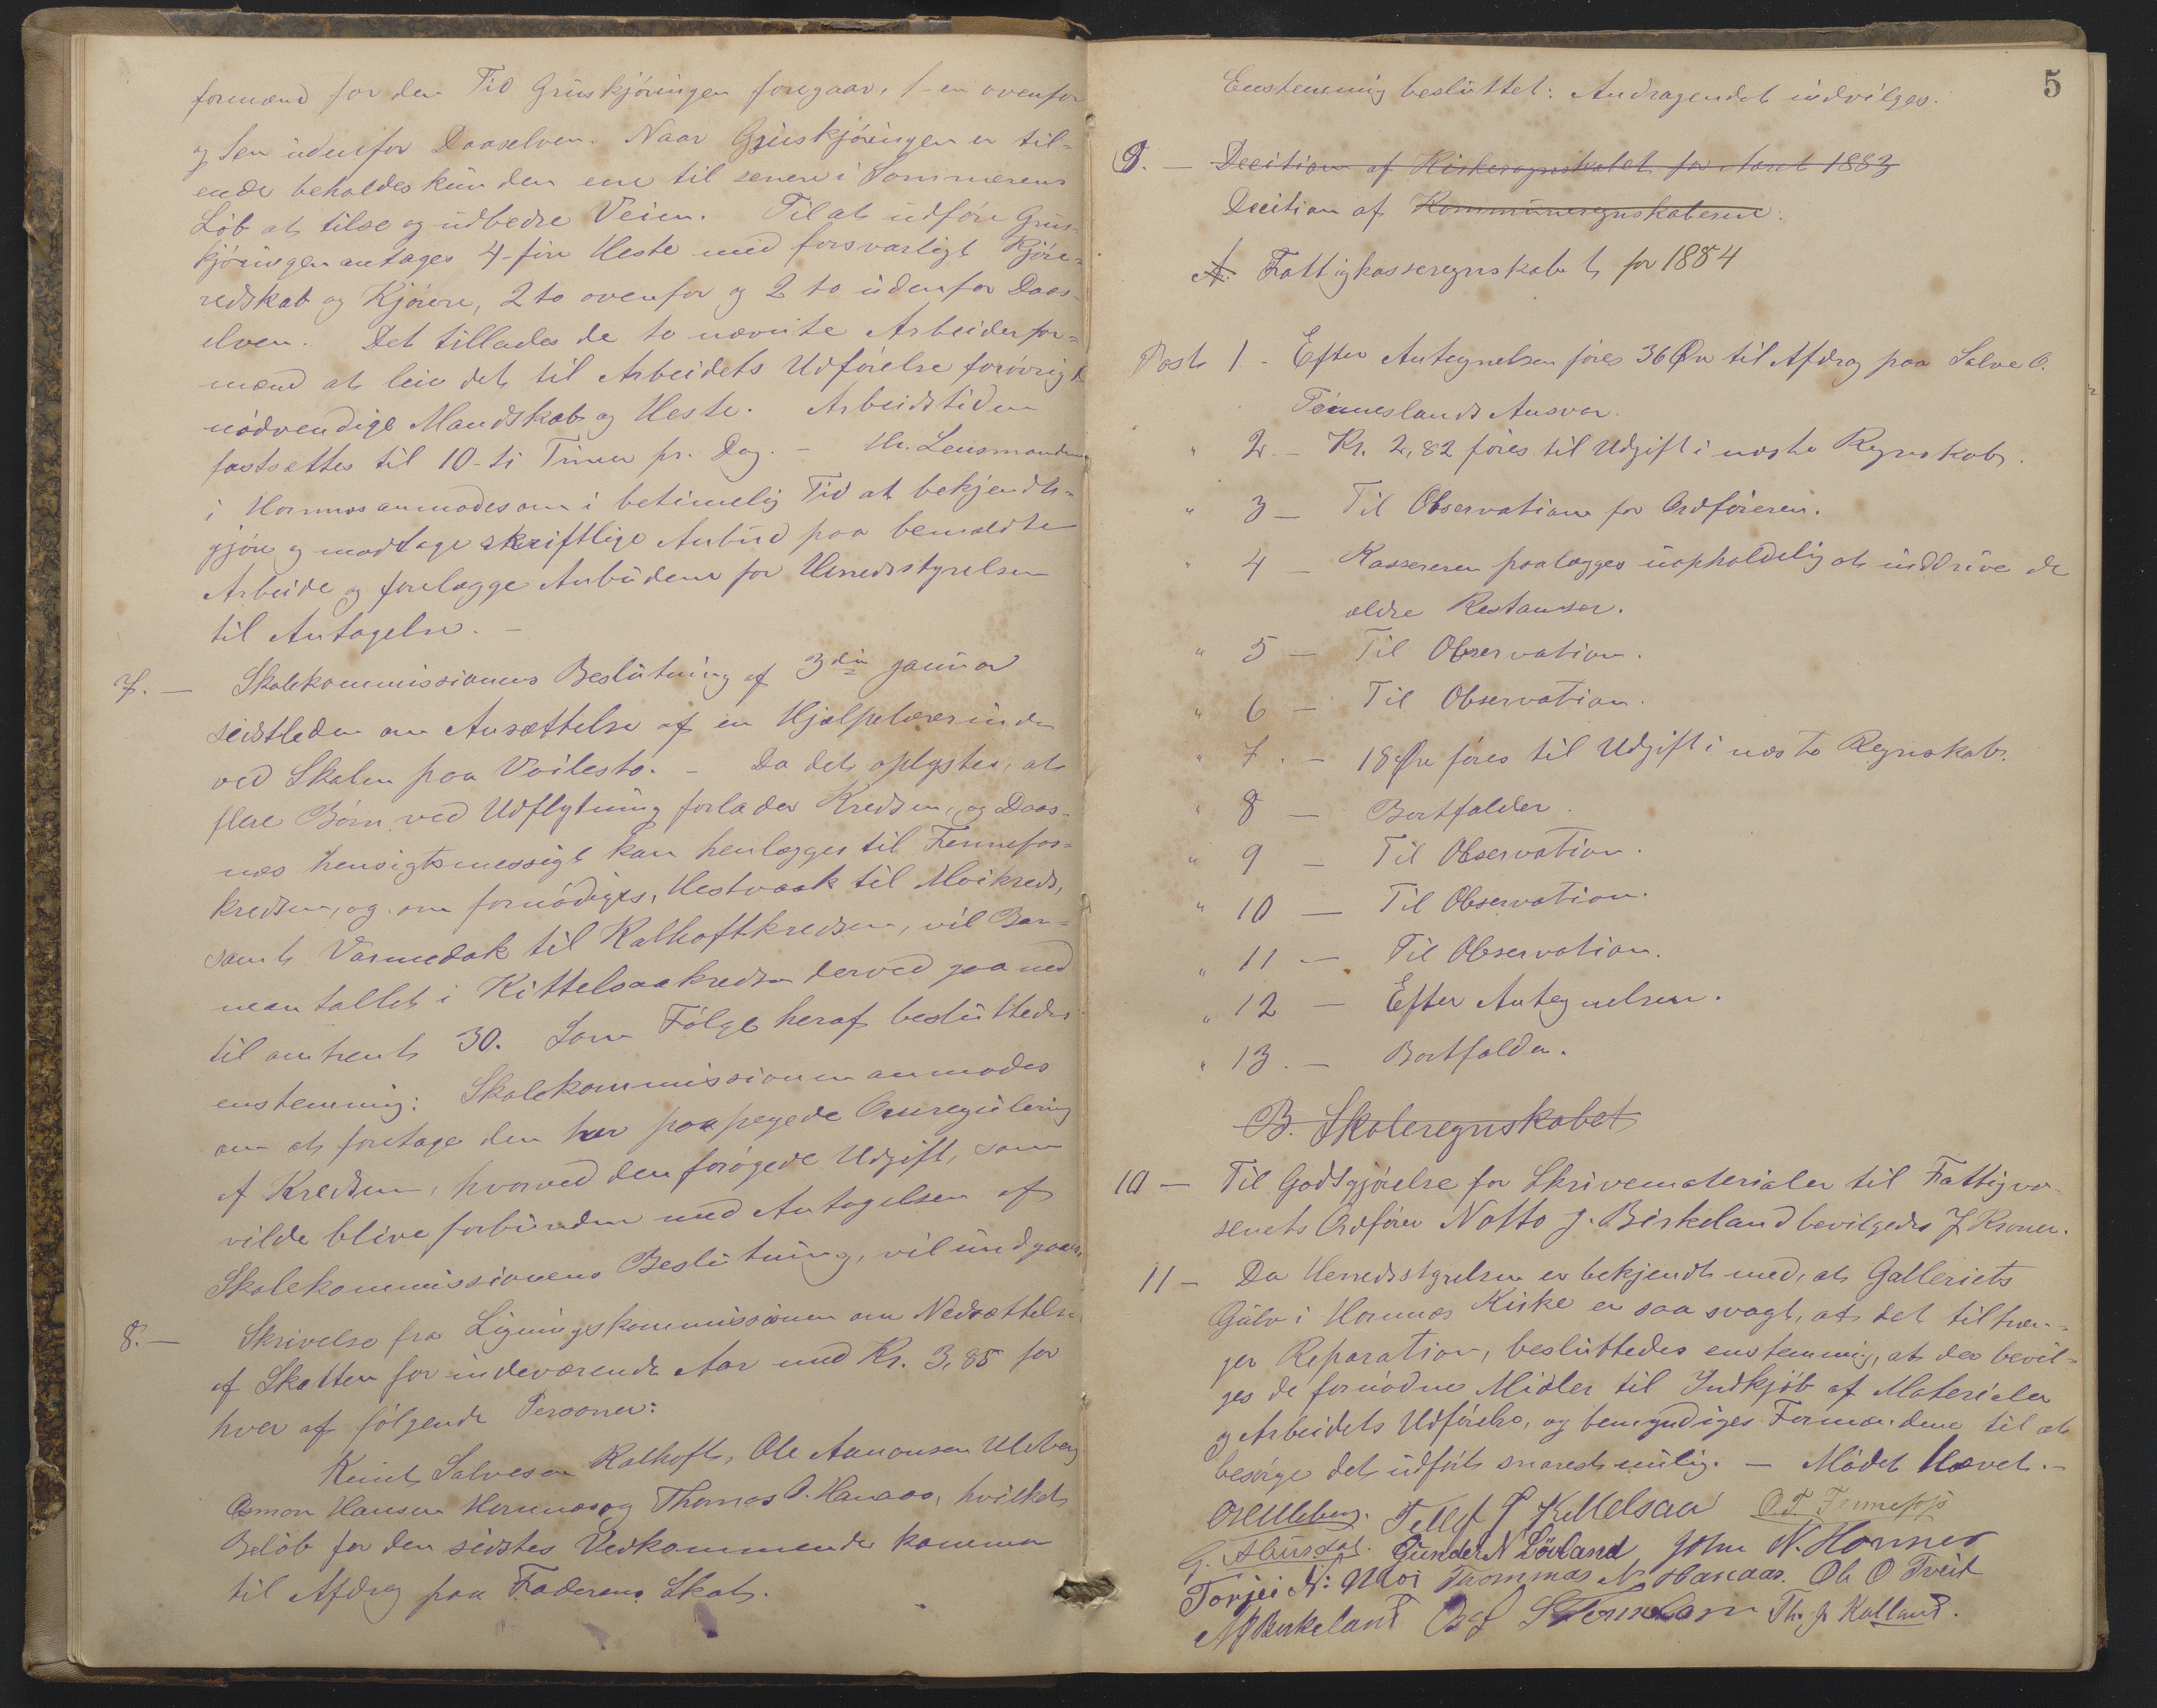 formænd for den Tid Gruskjöringen foregaar, 1-en ovenfor
og 1en udenfor Daaselven. Naar Gruskjöringen er til-
ende beholdes kun den ene til senere i Sommerens
Löb at tilse og udbedre Veien. Til at udföre Grus-
kjöringen antages 4-fire Heste med forsvarligt Kjöre-
redskab og Kjörere, 2 to ovenfor og 2 to udenfor Daas-
elven. Det tillades de to nævnte Arbeiderfor-
mænd at leie det til Arbeidets Udförelse forövrigt
nödvendige Mandskab og Heste. Arbeidstiden
fastsættes til 10-ti Timer pr. Dag. - Hr. Lensmanden
i Hornnes anmodes om i betimelig Tid at bekjendt-
gjöre og modtage skriftlige Anbud paa bemældte
Arbeide og forelægge Anbudene for Herredsstyrelsen
til Antagelse. -
7. - Skolekommissionens Beslutning af 3die januar
sidstleden om Ansættelse af en Hjælpelærerinde
ved Skolen paa Veilesto. - Da det oplystes, at
flere Börn ved Udflytning forlader Kredsen, og Daas-
næs hensigtsmessigt kan henlægges til Fennefos-
kredsen, og om fornödiges, Hestvaak til Moikreds,
samt Varmedak til Kalhoftkredsen, vil Bar-
neantallet i Kittelsaakredsen derved gaa ned
til omtrent 30. Som Fölge heraf besluttedes
enstemmig: Skolekommissionen anmodes
om at foretage den her paapegede Omregulering
af Kredsen, hvorved den forögede Udgift, som
vilde blive forbunden med Antagelsen af
Skolekommissionens Beslutning, vil undgaaes.
8. - Skrivelse fra Ligningskommissionen om Nedsættelse
af Skatten for indeværende Aar med Kr. 3,85 for
hver af fölgende Personer:
Knut Salvesen Kalhoft, Ole Aanonsen Uleberg
Osmon Hansen Hornnes og Thomas O. Hanaas, hvilket
Belöb for den sidstes Vedkommende kommer
til Afdrag paa Faderens Skat.
5
Enstemmig besluttet: Andragendet indvilges.
9. - Decition af Kirkeregnskabet for Aaret 1883
Decition af Kommuneregnskaberne:
A. Fattigkasseregnskabet for 1884
Post 1 - Efter Antegnelsen föres 36 Öre til Afdrag paa Salve O.
Tönneslands Ansvar.
" 2 - Kr. 2,82 föres til Udgift i næste Regnskab.
" 3 - Til Observation for Ordföreren.
" 4 - Kassereren paalægges uopholdelig at inddrive de
ældre Restanser.
" 5 - Til Observation.
" 6 - Til Observation.
" 7. - 18 Öre föres til Udgift i næste Regnskab.
" 8 - Bortfalder.
" 9 - Til Observation.
" 10 - Til Observation.
" 11 - Til Observation.
" 12 - Efter Antegnelsen.
" 13. - Bortfalder.
B. Skoleregnskabet
10 - Til Godtgjörelse for Skrivematerialer til Fattigvæ-
senets Ordförer Notto J. Birkeland bevilgedes 7 Kroner.
11 - Da Herredsstyrelsen er bekjendt med, at Galleriets
Gulv i Hornnes Kirke er saa svagt, at det tiltræn-
ger Reparation, besluttedes enstemmig, at der bevil-
ges de fornödne Midler til Indkjöb af Materialer
og Arbeidets Udförelse, og bemyndiges Formændene til at
besörge det udfört snarest mulig. - Mödet Hævet. -
OAUleberg. Tellef T Kittelsaa O.T. Fennefos
G. Abusdal. Gunder N Lövland John N. Hornnes
Torjei N: Moi Thommas N Hanaas. Ole O Tveit
NJBirkeland Th. J. Kalland.